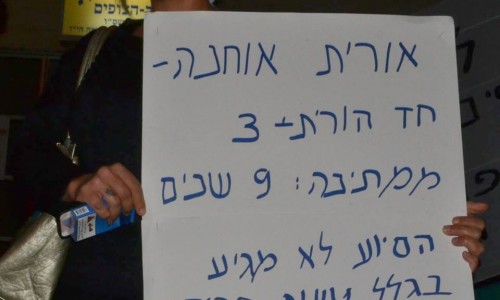 ה-הצופים
אורית אוחנה-
חד הורית + 3
ממתינה: 9 שנים
הסיוע לא מגיע
בגלל